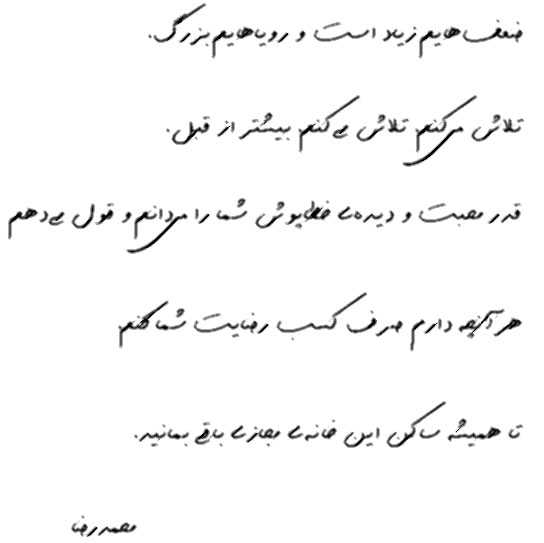 ضعف‌هایم زیاد است و رویاهایم بزرگ.
تلاش می‌کنم. تلاش می‌کنم بیشتر از قبل.
قدر محبت و دیده‌ی خطاپوش شما را می‌دانم و قول می‌دهم
هر آنچه دارم صرف کسب رضایت شما کنم.
تا همیشه ساکن این خانه‌ی مجازی باقی بمانید.
محمدرضا